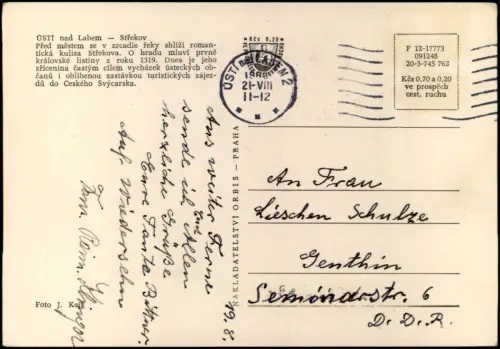 ÚSTÍ nad Labem — Střekov
Před městem se v arcadle řeky shlíží roman-
tická kulisa Střekova. O hradu mluví prvně
královské listiny z roku 1319. Dnes je jeho
zřícenina častým cílem vycházek ústeckých ob-
čanů i oblíbenou zastávkou turistických zájez-
dů do Českého Švýcarska.
Kčs 0,20
ÚSTÍ nad LABEM 2
21-VIII
11-12
F 12-17773
091248
20-3-745 762
Kčs 0,70 a 0,20
ve prospěch
cest. ruchu
19.8.
Aus weiter Ferne
sende ich Allen
herzliche Grüße
Eure Tante
Auf Wiedersehn
Fam.
NAKLADATELSTVÍ ORBIS - PRAHA
An Frau
Lieschen Schulze
Genthin
Semónarstr. 6
D. D. R.
Foto J.